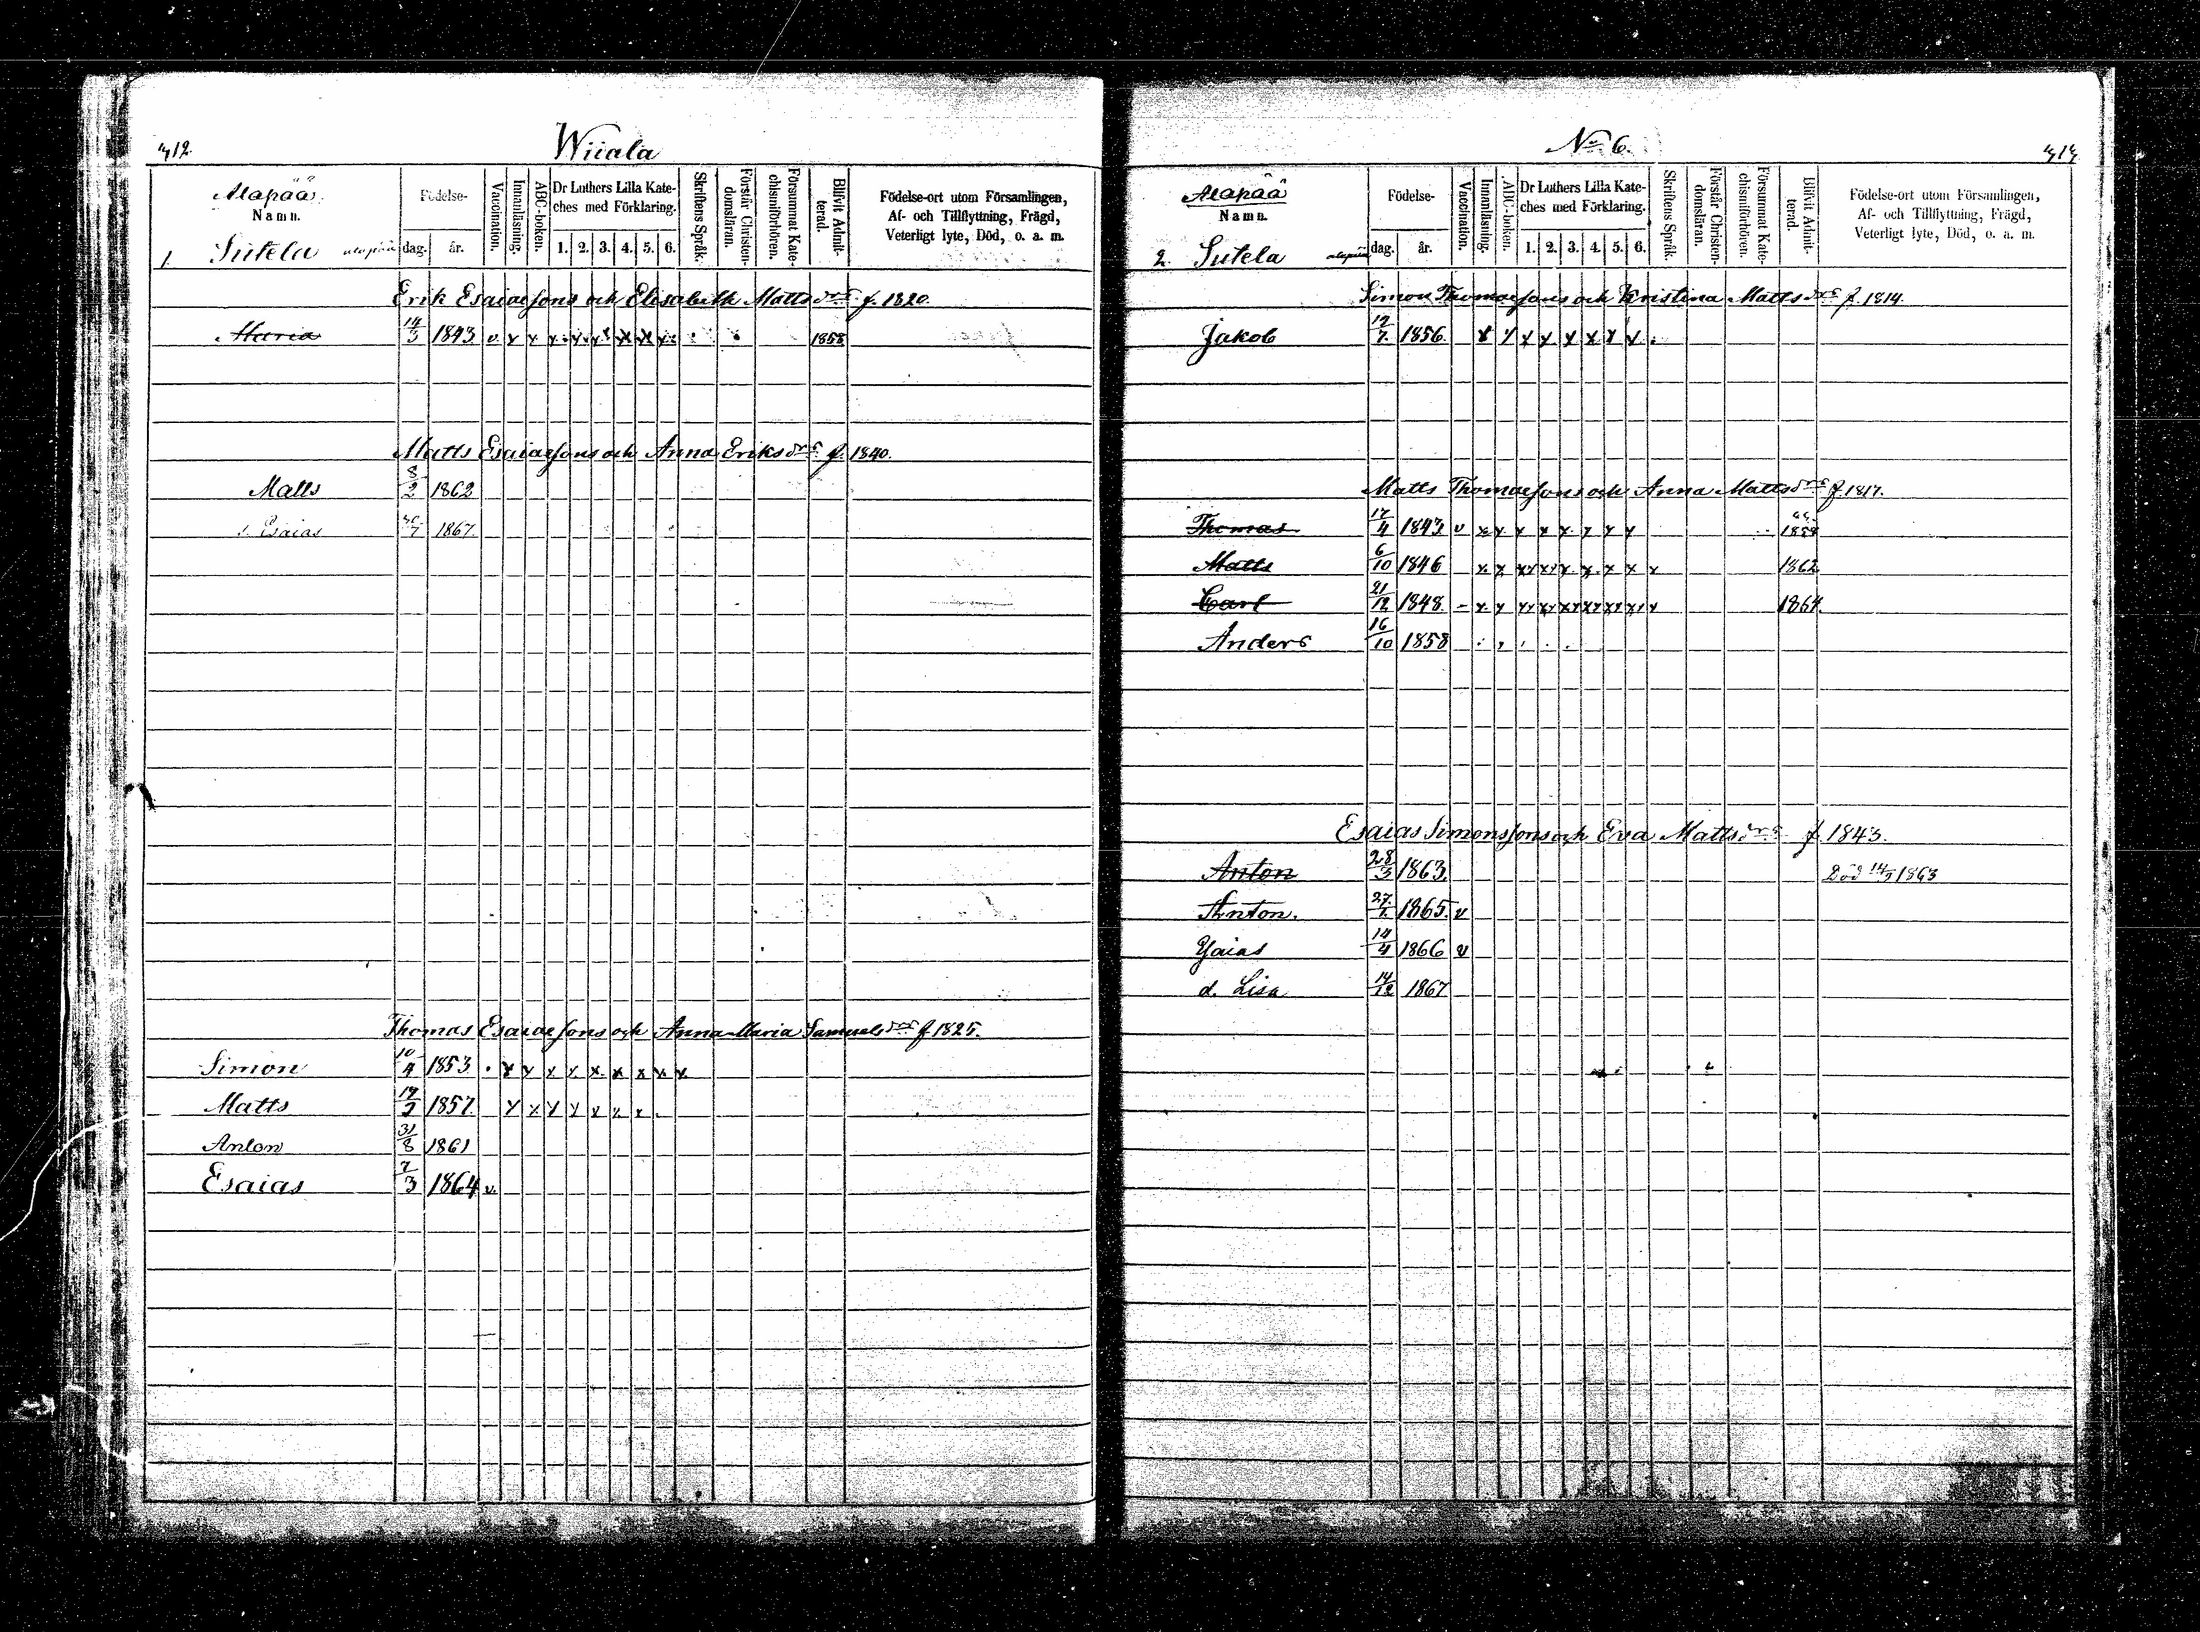 412.
Wiiala
Alapää
Namn.
1. Sutela alapää
Födelse-
dag. år.
Vaccination.
Innanläsning.
ABC-boken.
Dr Luthers Lilla Kate-
ches med Förklaring.
1. 2. 3. 4. 5. 6.
Skriftens Språk.
Förstår Christen-
domsläran.
Försummat Kate-
chismiförhören.
Blifvit Admit-
terad.
Födelse-ort utom Församlingen,
Af- och Tillflyttning, Frägd,
Veterligt lyte, Död, o. a. m.
Erik Esaiaesons och Elisabeth Mattsdrs f. 1820.
Maria 14/3 1843 v x x x x x x x x 1858
Matts Esaiaesons och Anna Eriksdrs f. 1840.
Matts 8/2 1862
s. Esaias 1867
Thomas Esaiaesons och Anna Maria Samuelsdrs f 1825.
Simon 10/4 1853 x x x x x x x x x
Matts 1857. x x x x x x x
Anton 31/8 1861
Esaias 7/3 1864 v.
No 6.
Alapää
Namn.
2. Sutela alapää
Födelse-
dag. år.
Vaccination.
Innanläsning.
ABC-boken.
Dr Luthers Lilla Kate-
ches med Förklaring.
1. 2. 3. 4. 5. 6.
Skriftens Språk.
Förstår Christen-
domsläran.
Försummat Kate-
chismiförhören.
Blifvit Admit-
terad.
Födelse-ort utom Församlingen,
Af- och Tillflyttning, Frägd,
Veterligt lyte, Död, o. a. m.
Simon Thomaesons och Kristina Mattsdrs f 1814.
Jakob 1856. x x x x x x x x
Matts Thomaesons och Anna Mattsdrs f. 1817.
Thomas 17/4 1843 v x x x x x x x x
Matts 6/10 1846 x x x x x x x x x 1862
Carl 21/12 1848 – x x x x x x x x x 1864.
Anders 16/10 1858
Esaias Simonssons och Eva Mattsdrs f 1843.
Anton 28/3 1863. Död 1863
Anton. 1865. v
Yaias 14/4 1866 v
d. Lisa 14/12 1867